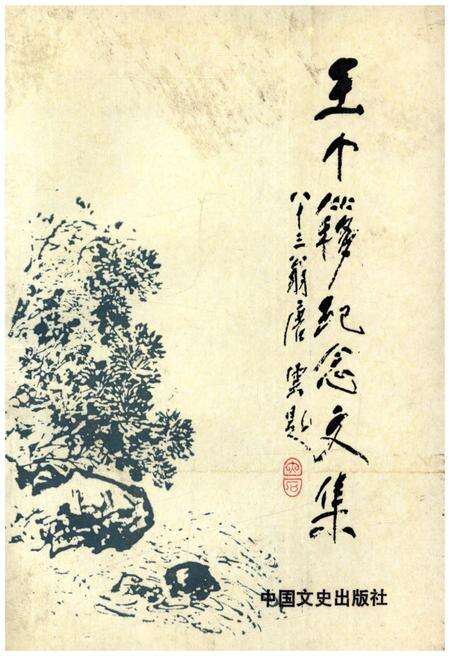 王个簃纪念文集
八十三翁唐雲題
大石
中国文史出版社